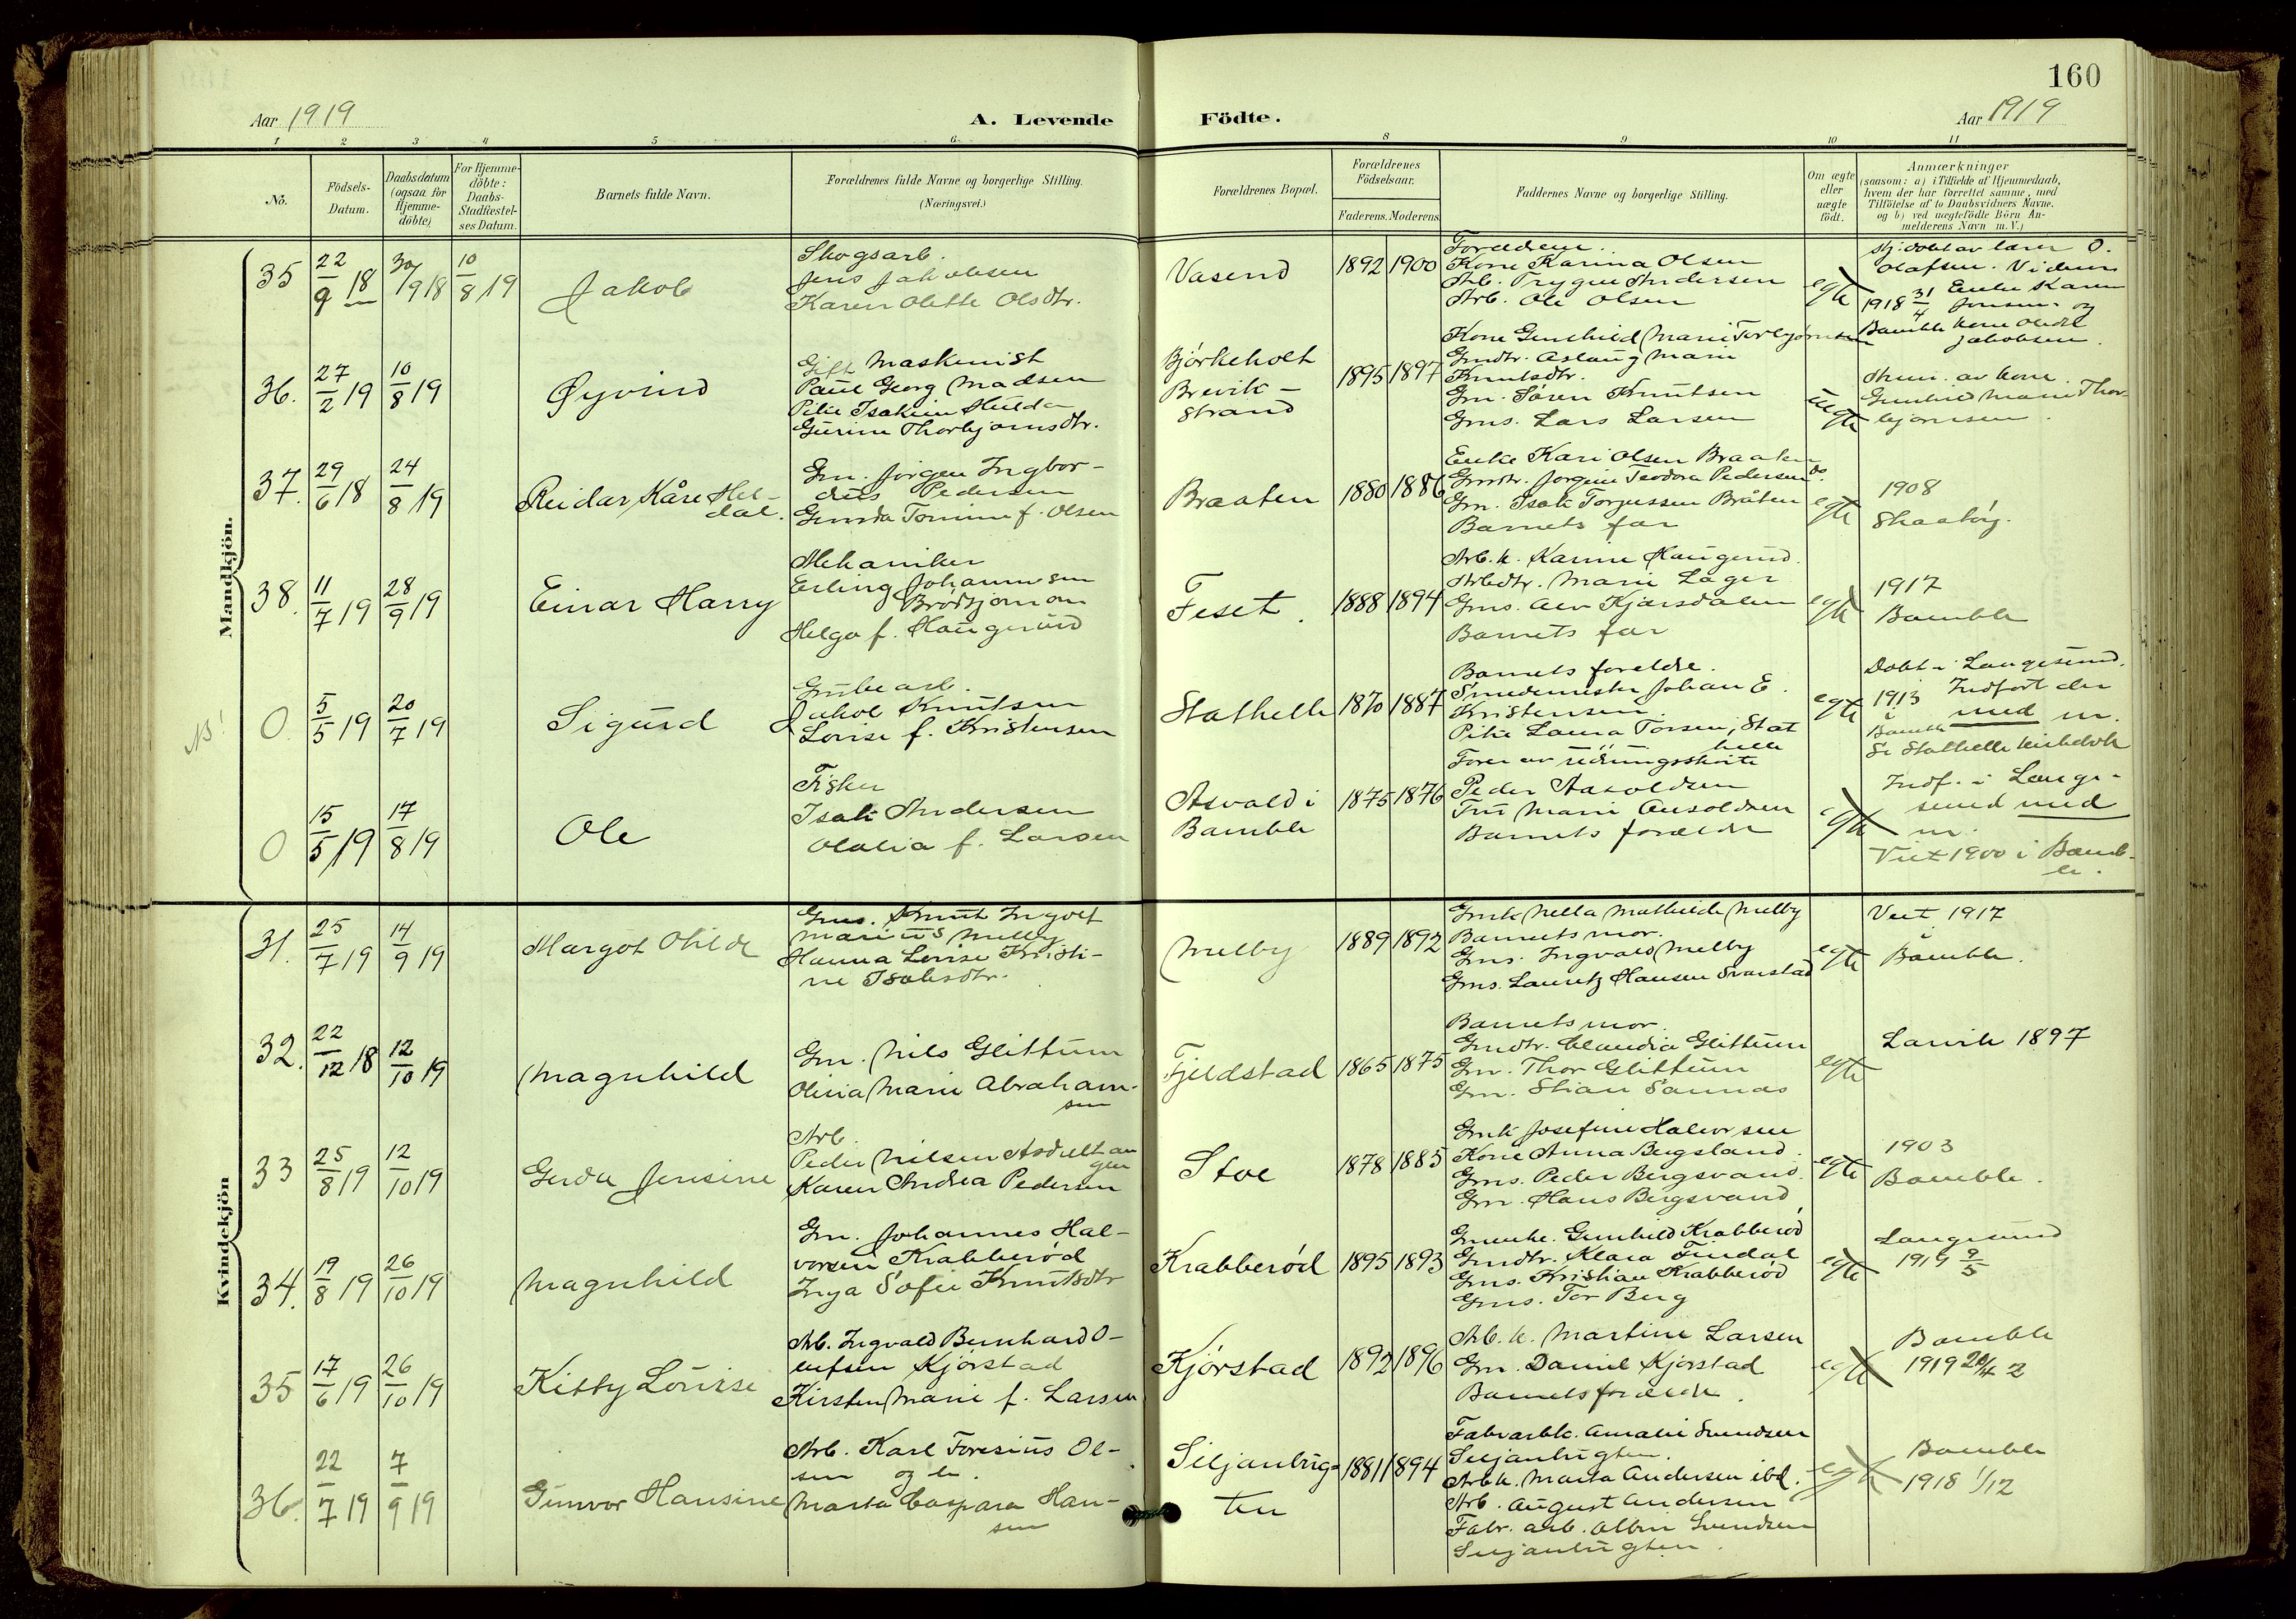 160
Aar 1919
A. Levende Födte.
Aar 1919
1 2 3 4 5 6 8 9 10 11
No.
Födsels-
Datum.
Daabsdatum
(ogsaa for
Hjemme-
döbte)
For Hjemme-
döbte:
Daabs-
Stadfæstel-
ses Datum.
Barnets fulde Navn.
Forældrenes fulde Navne og borgerlige Stilling.
(Næringsvei.)
Forældrenes Bopæl.
Forældrenes
Födselsaar.
Faderens. Moderens
Faddernes Navne og borgerlige Stilling.
Om ægte
eller
uægte
födt.
Anmærkninger
(saasom: a) i Tilfælde af Hjemmedaab,
hvem der har forrettet samme, med
Tilföielse af to Daabsvidners Navne.
og b) ved uægtefödte Börn An-
melderens Navn m. V.)
Mandkjön.
35
22/9 18
30/9 18
10/8 19
Jakob
Skogsarb.
Jens Jakobsen
Karen Olette Olsdtr.
Vasend
1892 1900
Foreldrene.
Kone Karina Olsen
Arb. Trygve Andersen
Arb. Ole Olsen
egte
hj. døbt av lærer O.
Olafsen. Vidner
Enke Karen
1918 31/4 Jonsen og
Bamble kone
Jakobsen.
36.
27/2 19
10/8 19
Øyvind
Gift Maskinist
Paul Georg Madsen
Pike Isakine Hulda
Gurine Thorbjørnsdtr.
Bjørkeholt
Brevik-
strand
1895 1897
Kone Gunhild Marie Torbjørnsen
Gmdtr. Aslaug Marie
Knutsdtr.
Gm. Søren Knutsen
Gms. Lars Larsen
uegte
Anm. av kone
Gunhild Marie Thor-
bjørnsen.
37.
29/6 18
24/8 19
Reidar Kåre Hel-
dal.
Gm. Jørgen Ingbor-
dius Pedersen
Gunda Tomine f. Olsen
Braaten
1880 1886
Enke Kari Olsen Braaten
Gmdtr. Jorgine Teodora Pedersen do.
Gm. Isak Torgussen Bråten
Barnets far
egte
1908
Skaatøy.
38.
11/7 19
28/9 19
Einar Harry
Mekaniker
Erling Johannesen
Helga f. Haugerud
Feset.
1888 1894
Arb. k. Karine Haugerud.
Arbdtr. Marie Lager
Gms. Alv Kjærsdalen
Barnets far
egte
1917
Bamble
NB!
0.
5/5 19
20/7 19
Sigurd
Grubearb.
Jakob Knutsen
Lovise f. Kristensen
Stathelle
1870 1887
Barnets foreldre.
Smedemester Johan E.
Kristensen.
Pike Laura Torsen, Stat
helle
egte
Døbt i Langesund.
1913 Indført der
Bamble med nr.
Se Stathelle kirkebok
0
15/5 19
17/8 19
Ole
Fisker
Isak Andersen
Olalia f. Larsen
Asvald i
Bamble
1875 1876
Fører av redningsskøite
Peder Aanoldsen
Fru Marie Anoldsen
Barnets forældre
egte
Indf. i Lange-
sund med
nr.
Viet 1900 i Bamb-
le.
Kvindekjön
31.
25/7 19
14/9 19
Margot Otilde
Gms. Knut Ingolf
Marius Melby
Hanna Lovise Kristi-
ne Isaksdtr.
Melby
1889 1892
Gmk Nella Mathilde Melby
Barnets mor.
Gms. Ingvald Melby
Gms. Lauritz Hansen Svarstad
egte
Viet 1917
Bamble.
32.
22/12 18
12/10 19
Magnhild
Gm. Nils Glittum
Olivia Marie Abraham-
sen
Fjeldstad
1865 1875
Barnets mor.
Gmdtr. Claudia Glittum
Gm. Thor Glittum
Gm. Stian Sannes
egte
Larvik 1897
33
25/8 19
12/10 19
Gerda Jensine
Arb.
Peder Nilsen Asdeltan
gen
Karen Andrea Pedersen
Stoe
1878 1885
Gmk Josefine Halvorsen
Kone Anna Bergsland.
Gms. Peder Bergsvand.
Gm. Hans Bergsvand
egte
1903
Bamble.
34.
19/8 19
26/10 19
Magnhild
Gm. Johannes Hal-
vorsen Krabberød
Inga Sofie Knutsdtr
Krabberød
1895 1893
Gmenke. Gunhild Krabberød
Gmdtr. Klara Findal
Gms. Kristian Krabberød
Gms. Tor Berg
egte
Langesund
1919 9/5
35
17/6 19
26/10 19
Kitty Lovise
Arb. Ingvald Bernhard O-
lufsen Kjørstad
Kirsten Marie f. Larsen
Kjørstad
1892 1896
Arb. k. Martine Larsen
Gm. Daniel Kjørstad
Barnets forældre.
egte
Bamble
1919
36.
22/7 19
7/9 19
Gunvor Hansine
Arb. Karl Foresius Ol-
sen og h.
Marta Caspara Han-
sen
Siljanbug-
ten
1881 1894
Fabrarbk. Amalie Svendsen
Siljanbugten.
Arbk. Marta Andersen ibd.
Arb. August Andersen
Fabr. arb. Albin Svendsen
Siljanbugten.
egte
Bamble
1918 1/12